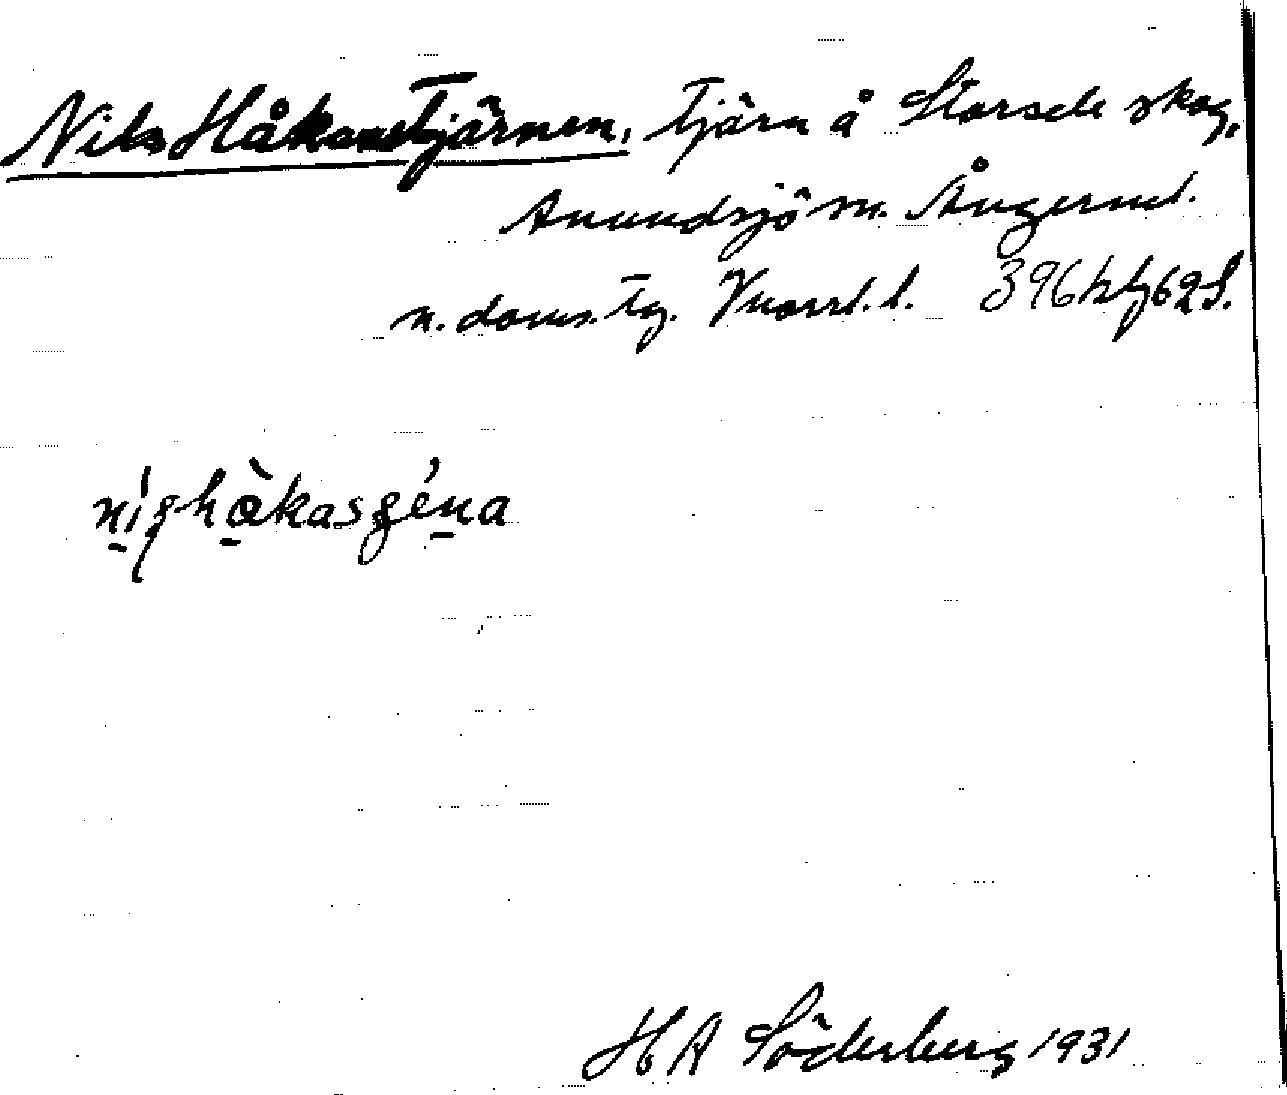 Nils Håkanstjärnen, tjärn å Storsele skog,
Anundsjö sn. Ångerml.
n. doms. tg. Vnorrl. l. 396
nı̨ghàkasgéna
H A Söderberg 1931